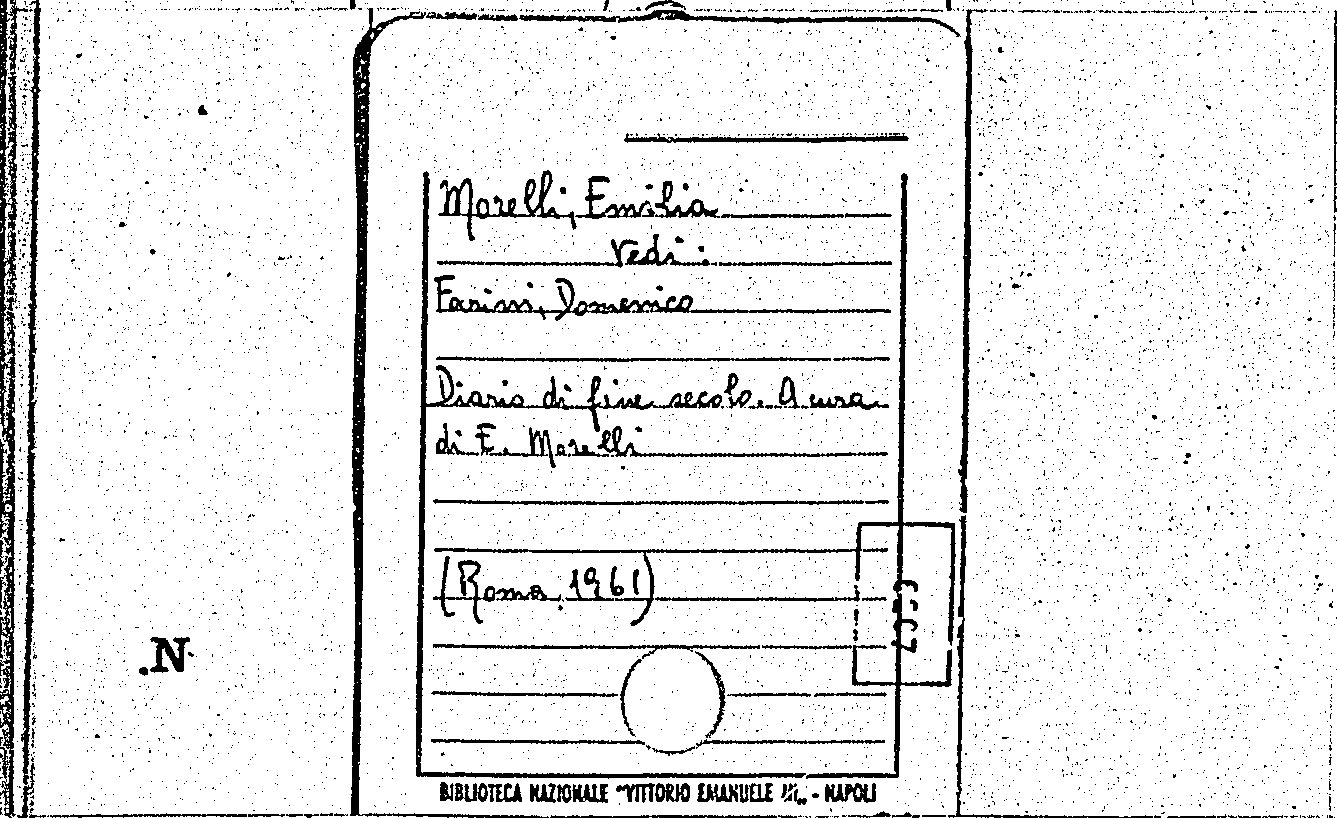 Morelli, Emilia
Vedi :
Farini, Domenico
Diario di fine secolo. A cura
di E. Morelli
(Roma, 1961)
.N
BIBLIOTECA NAZIONALE "VITTORIO EMANUELE III„ - NAPOLI